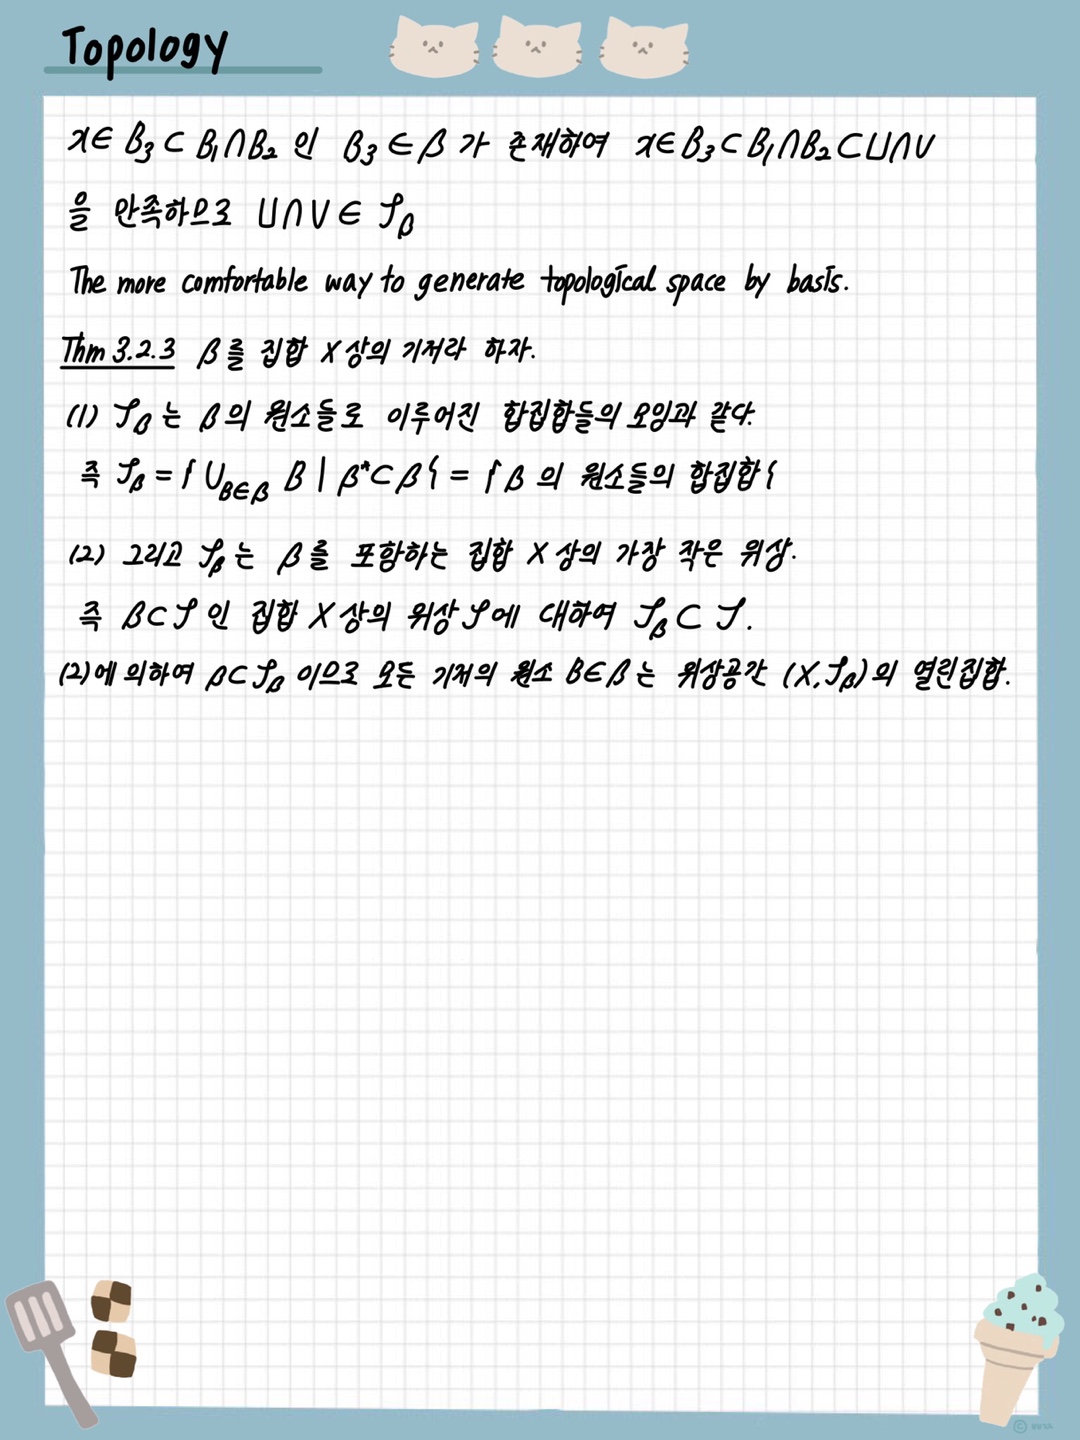 Topology
x∈B₃⊂B₁∩B₂ 인 B₃∈β가 존재하여 x∈B₃⊂B₁∩B₂⊂U∩V
을 만족하므로 U∩V∈𝒯_β
The more comfortable way to generate topological space by basis.
Thm 3.2.3 β를 집합 X상의 기저라 하자.
(1) 𝒯_β는 β의 원소들로 이루어진 합집합들의 모임과 같다.
즉 𝒯_β = { ∪_{B∈β} B | β*⊂β } = { β의 원소들의 합집합 }
(2) 그리고 𝒯_β는 β를 포함하는 집합 X상의 가장 작은 위상.
즉 β⊂𝒯인 집합 X상의 위상 𝒯에 대하여 𝒯_β⊂𝒯.
(2)에 의하여 β⊂𝒯_β 이므로 모든 기저의 원소 B∈β는 위상공간 (X,𝒯_β)의 열린집합.